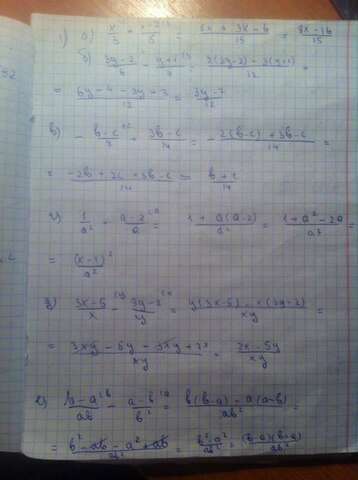 1) а) x/3 + x-2/5 = 5x + 3x - 6/15 = 8x - 6/15
б) 3y-2/6 - y+1/4 = 2(3y-2) - 3(y+1)/12 =
= 6y - 4 - 3y + 3/12 = 3y-7/12
в) - b-c/7 + 3b-c/14 = -2(b-c) + 3b-c/14 =
= -2b + 2c + 3b-c/14 = b+c/14
г) 1/a² + a-2/a = 1 + a(a-2)/a² = 1 + a² - 2a/a² =
= (x-1)²/a²
д) 3x-5/x - 3y-2/y = y(3x-5) - x(3y-2)/xy =
= 3xy - 5y - 3xy + 2x/xy = 2x - 5y/xy
е) b-a/ab - a-b/b² = b(b-a) - a(a-b)/ab² =
= b² - ab - a² + ab/ab² = b²-a²/ab² = (b-a)(b+a)/ab²